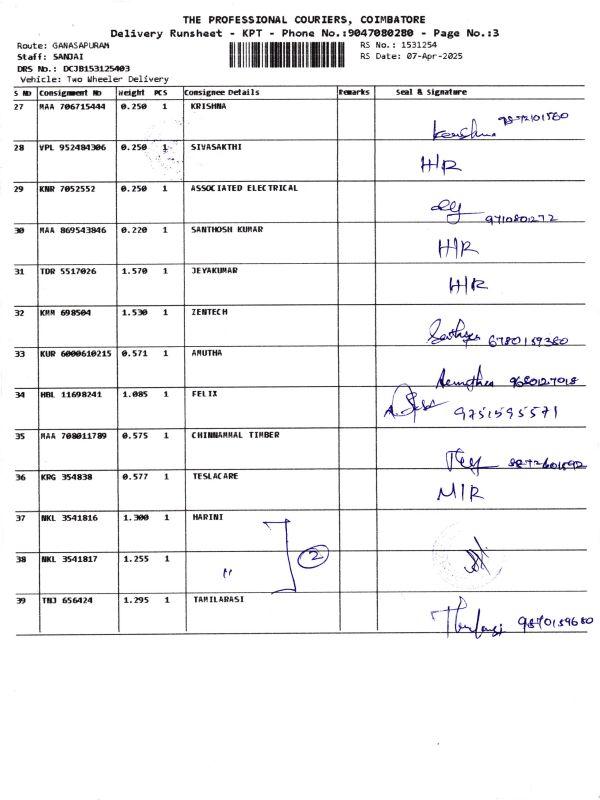 THE PROFESSIONAL COURIERS, COIMBATORE
Delivery Runsheet - KPT - Phone No.:9047080280 - Page No.:3
Route: GANASAPURAM RS No.: 1531254
Staff: SANJAI RS Date: 07-Apr-2025
DRS No.: DCJB153125403
Vehicle: Two Wheeler Delivery
S No Consignment No Weight PCS Consignee Details Remarks Seal & Signature
27 MAA 706715444 0.250 1 KRISHNA
28 VPL 952484306 0.250 1 SIVASAKTHI H/R
29 KNR 7052552 0.250 1 ASSOCIATED ELECTRICAL 9710801272
30 MAA 869543846 0.220 1 SANTHOSH KUMAR H/R
31 TDR 5517026 1.570 1 JEYAKUMAR H/R
32 KMM 698504 1.530 1 ZENTECH 6780159380
33 KUR 6000610215 0.571 1 AMUTHA 9680127018
34 HBL 11698241 1.085 1 FELIX 9751595571
35 MAA 708011789 0.575 1 CHINNAMMAL TIMBER
36 KRG 354838 0.577 1 TESLACARE M/R
37 NKL 3541816 1.300 1 HARINI
38 NKL 3541817 1.255 1 " 2
39 TNJ 656424 1.295 1 TAMILARASI 9870159680